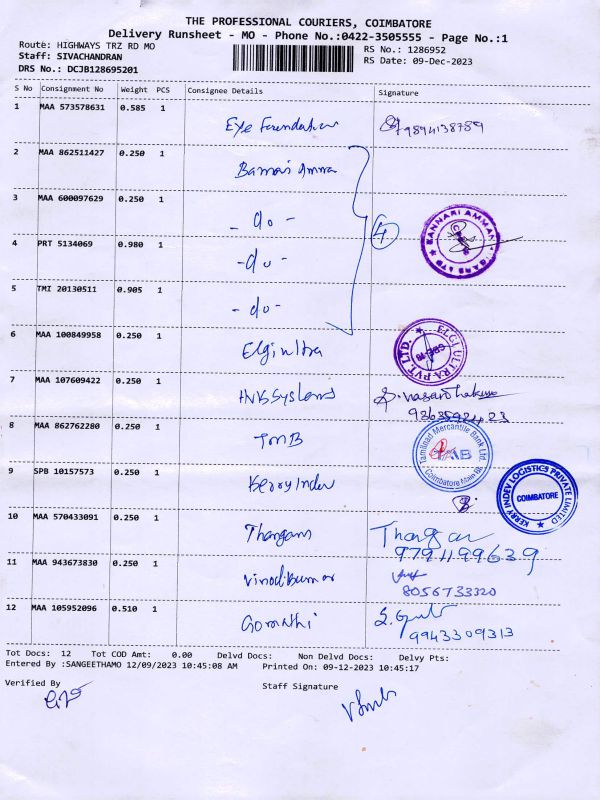 THE PROFESSIONAL COURIERS, COIMBATORE
Delivery Runsheet - MO - Phone No.:0422-3505555 - Page No.:1
Route: HIGHWAYS TRZ RD MO
RS No.: 1286952
Staff: SIVACHANDRAN
RS Date: 09-Dec-2023
DRS No.: DCJB128695201
S No Consignment No Weight PCS Consignee Details Signature
1 MAA 573578631 0.585 1 Eye Foundation 9894138789
2 MAA 862511427 0.250 1 Bannari Amma
3 MAA 600097629 0.250 1 - do -
4 PRT 5134069 0.980 1 - do -
4
BANNARI AMMAN SUGARS LTD
5 TMI 20130511 0.905 1 - do -
6 MAA 100849958 0.250 1 Elgi ultra
ELGI ULTRA PVT. LTD.
CBE-18
7 MAA 107609422 0.250 1 Systems
8 MAA 862762280 0.250 1 TMB
Tamilnad Mercantile Bank Ltd.
TMB
Coimbatore Main Br.
9 SPB 10157573 0.250 1 Kerry Indev
KERRY INDEV LOGISTICS PRIVATE LIMITED
COIMBATORE
10 MAA 570433091 0.250 1 Thangam
9791199639
11 MAA 943673830 0.250 1 Vinodkumar
8056733320
12 MAA 105952096 0.510 1 Gomathi
9943309313
Tot Docs: 12 Tot COD Amt: 0.00 Delvd Docs: Non Delvd Docs: Delvy Pts:
Entered By :SANGEETHAMO 12/09/2023 10:45:08 AM Printed On: 09-12-2023 10:45:17
Verified By Staff Signature